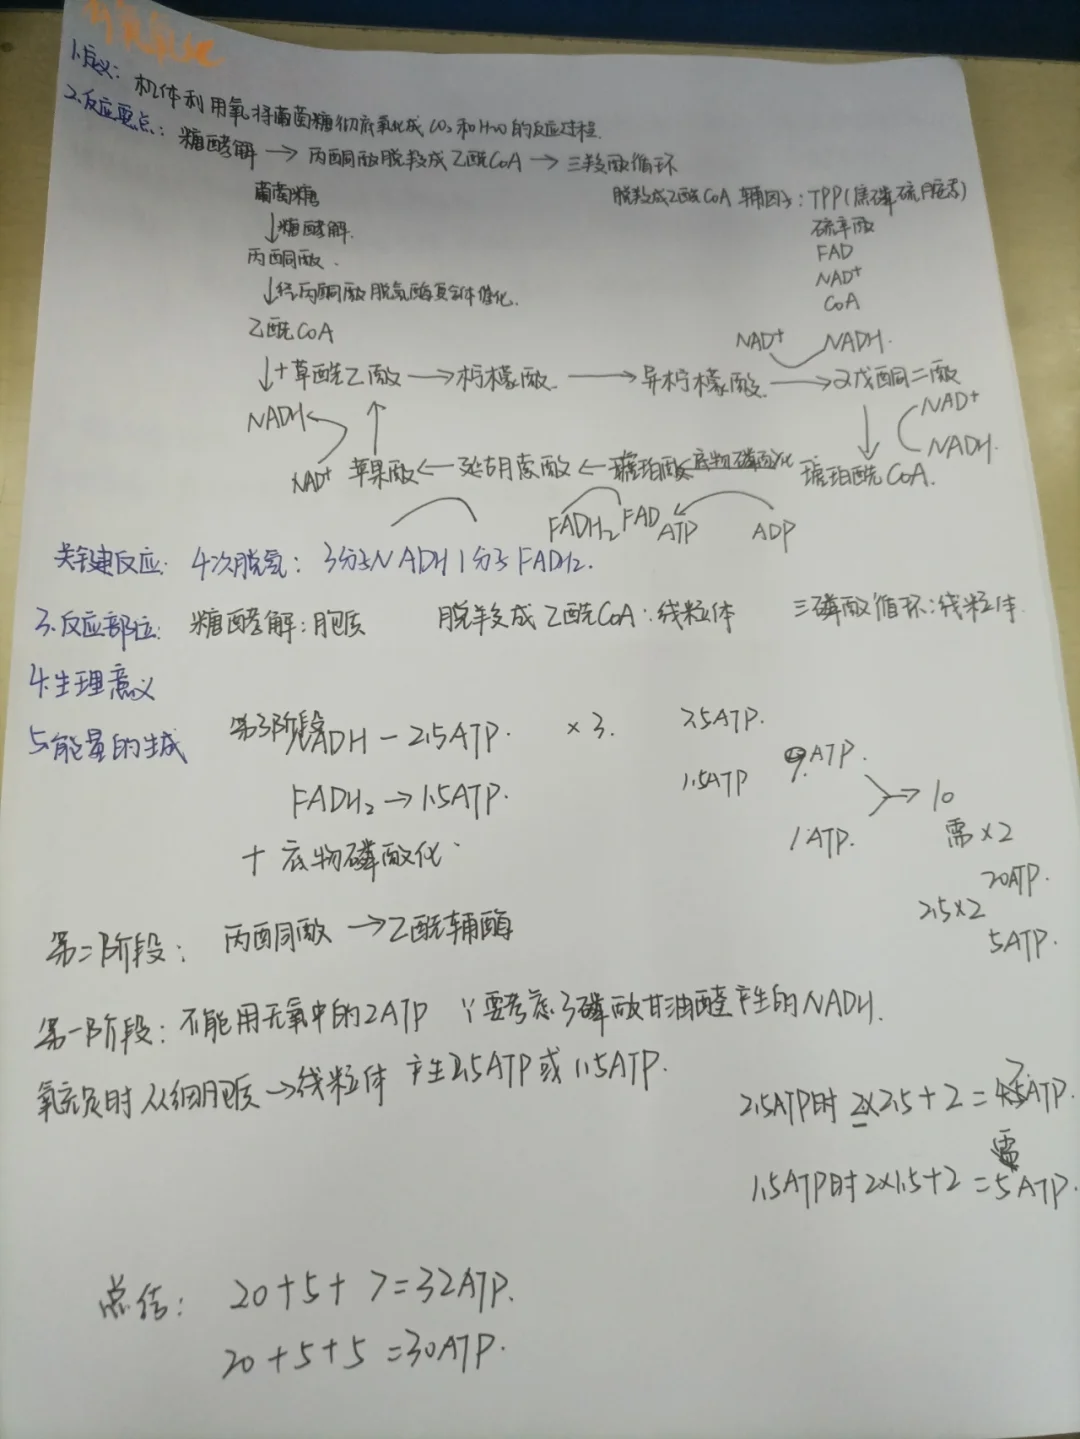 有氧氧化
1.定义: 机体利用氧将葡萄糖彻底氧化成CO₂和H₂O的反应过程.
2.反应要点: 糖酵解 → 丙酮酸脱羧成乙酰CoA → 三羧酸循环
葡萄糖 脱羧成乙酰CoA 辅因子: TPP(焦磷硫胺素)
↓糖酵解. 硫辛酸
丙酮酸. FAD
↓经丙酮酸脱氢酶复合体催化. NAD⁺
乙酰CoA CoA
NAD⁺ NADH.
↓+草酰乙酸 → 柠檬酸. → 异柠檬酸. → α戊酮二酸
NADH ↑ ↓ NAD⁺
NADH.
NAD⁺ 苹果酸 ← 延胡索酸 ← 琥珀酸 ← 底物磷酸化 琥珀酰CoA.
FADH₂ FAD ATP ADP
关键反应: 4次脱氢: 3分子NADH 1分子FADH₂.
3.反应部位: 糖酵解:胞质 脱羧成乙酰CoA:线粒体 三磷酸循环:线粒体.
4.生理意义
5.能量的生成 第3阶段 NADH - 2.5ATP. ×3. 7.5ATP.
FADH₂ → 1.5ATP. 1.5ATP 9ATP. → 10
+ 底物磷酸化 1ATP. 需×2
20ATP.
2.5×2
第二阶段: 丙酮酸 → 乙酰辅酶 5ATP.
第一阶段: 不能用无氧中的2ATP 要考虑3磷酸甘油醛产生的NADH.
氧充足时 从细胞质→线粒体 产生2.5ATP或1.5ATP.
2.5ATP时 2×2.5+2=7ATP.
1.5ATP时 2×1.5+2=5ATP.
总结: 20+5+7=32ATP.
20+5+5=30ATP.